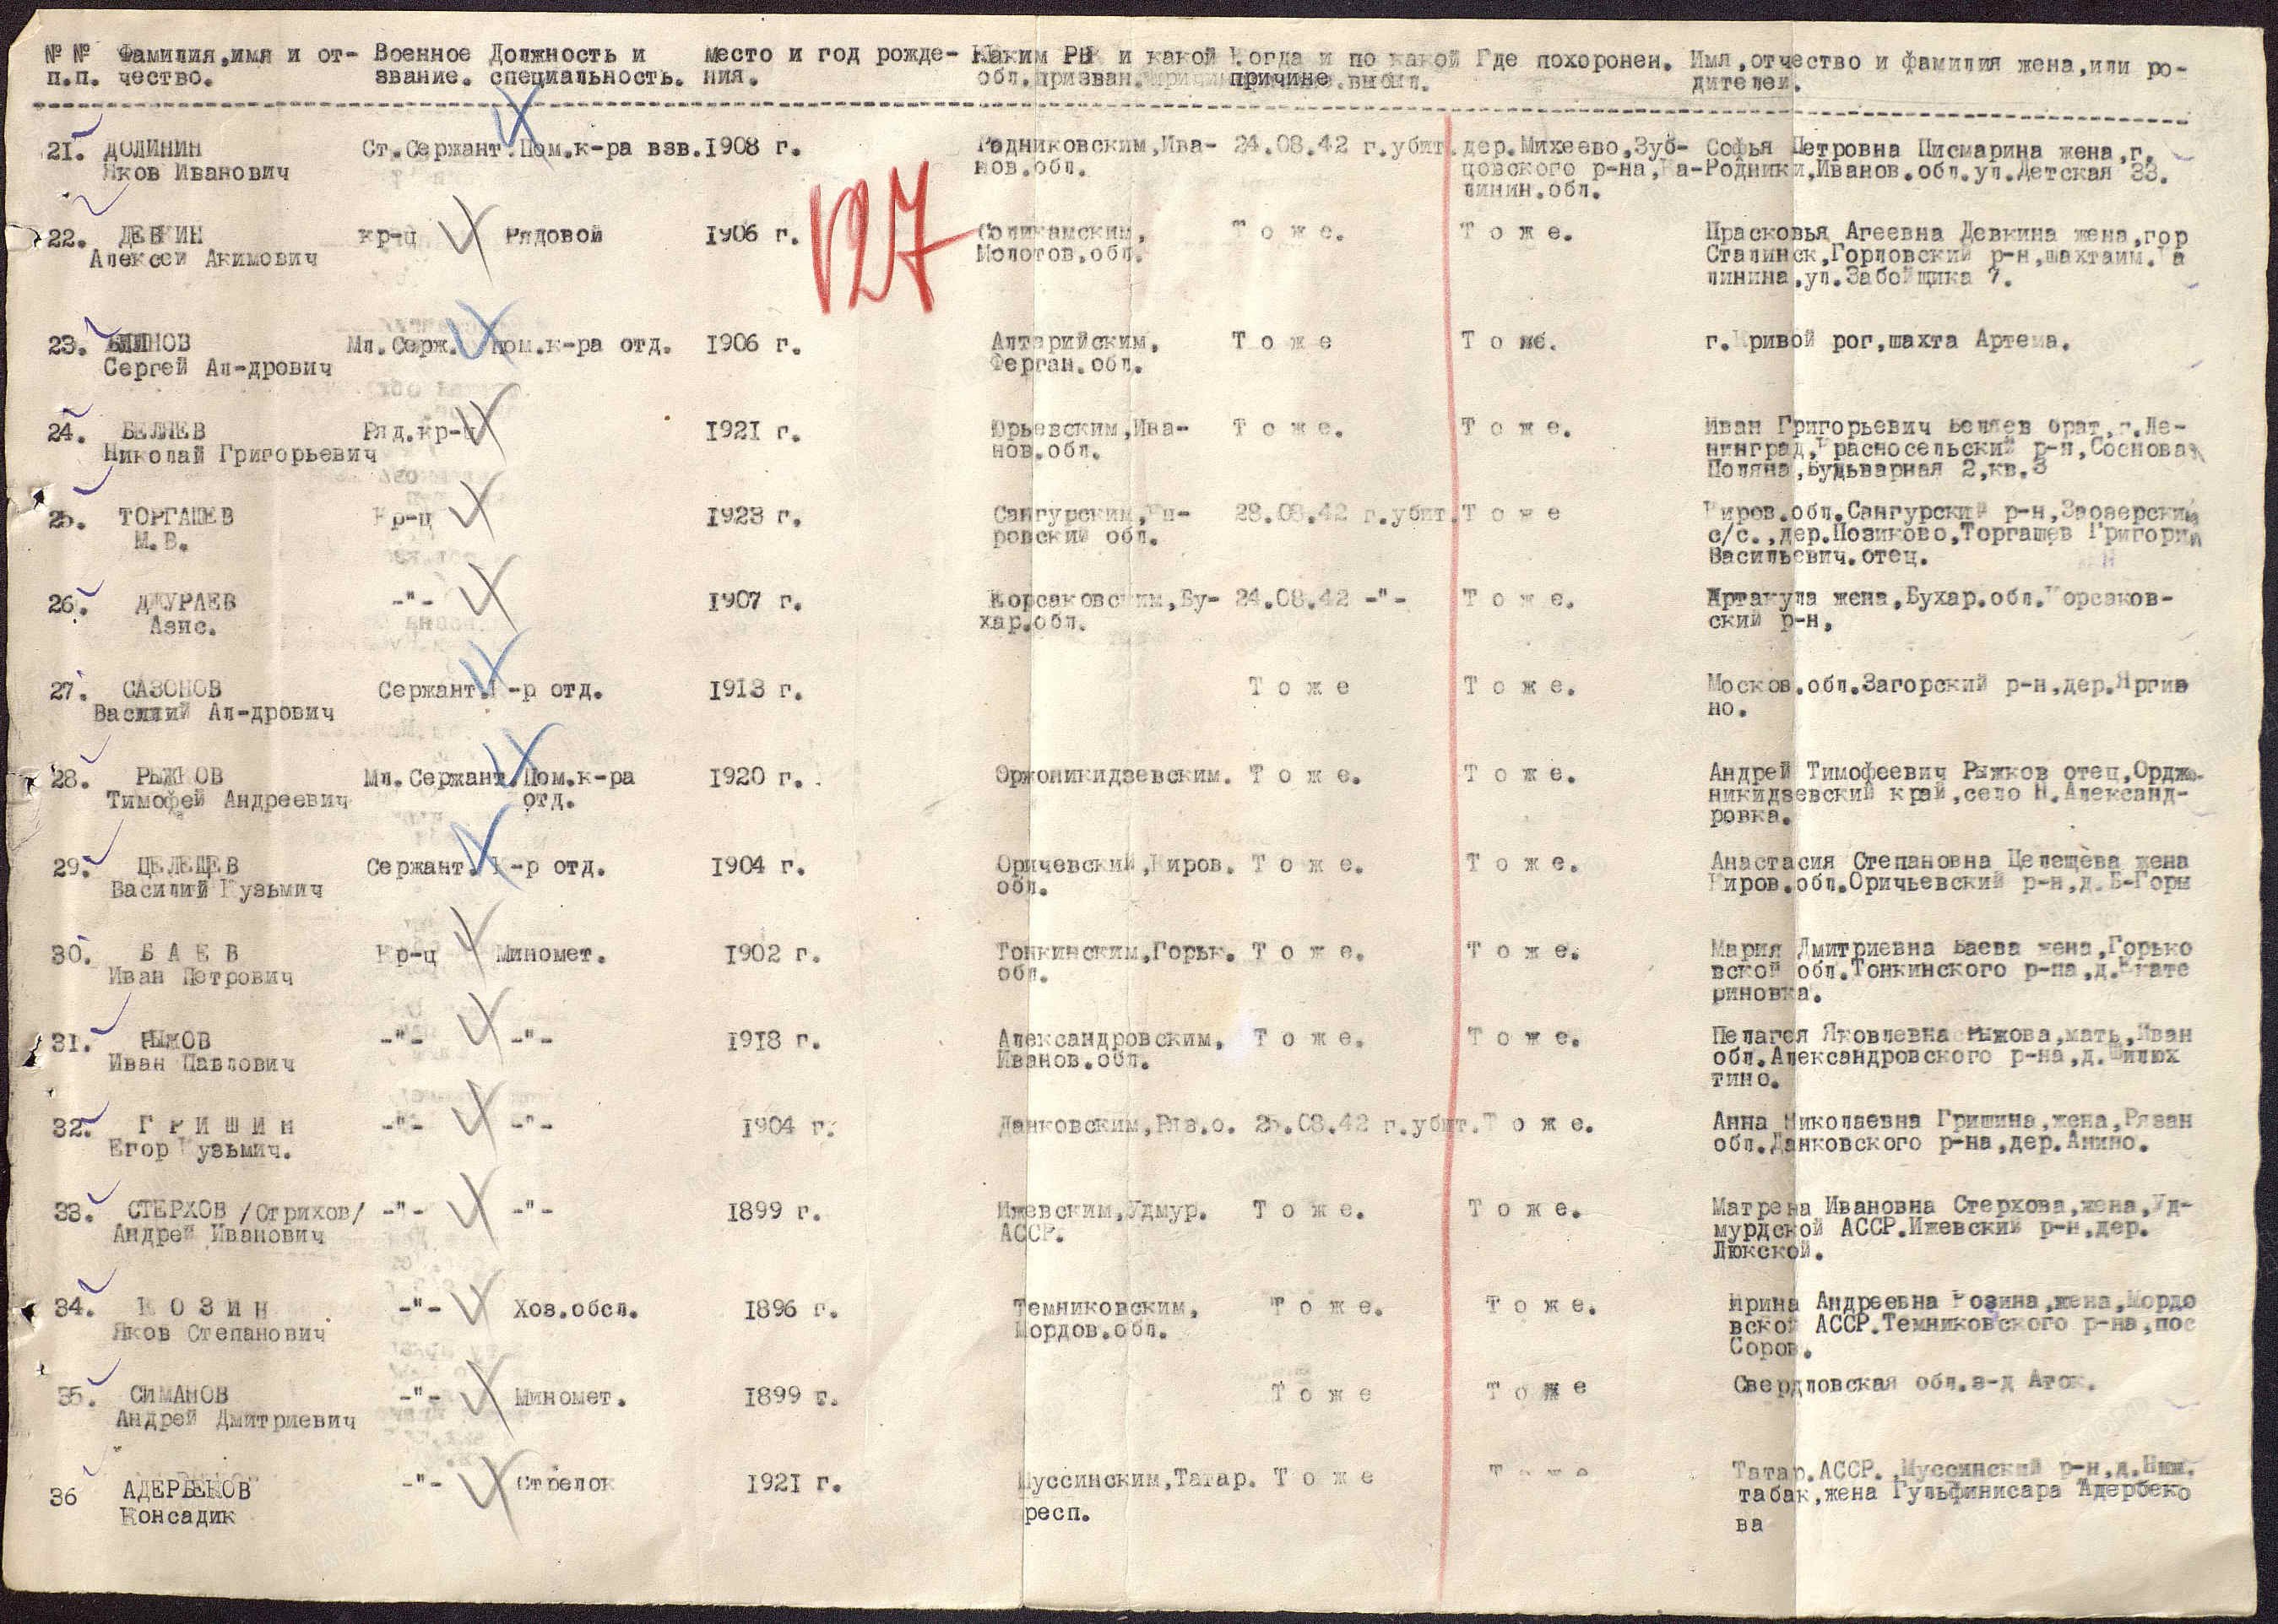 № № Фамилия,имя и от- Военное Должность и место и год рожде- Каким РВК и какой Когда и по какой Где похоронен. Имя,отчество и фамилия жена,или ро-
п.п. чество. звание. специальность. ния. обл.призван. причине выбыл. дителей.
21. ДОЛИНИН Ст.Сержант.Пом.к-ра взв. 1908 г. Родниковским,Ива- 24.08.42 г.убит. дер.Михеево,Зуб- Софья Петровна Писмарина жена,г.
Яков Иванович нов.обл. цовского р-на,Ка- Родники,Иванов.обл.ул.Детская 33.
линин.обл.
127
22. ДЕВКИН кр-ц Рядовой 1906 г. Соликамским, Т о ж е. Т о ж е. Прасковья Агеевна Девкина жена,гор
Алексей Акимович Молотов.обл. Сталинск,Горловский р-н,шахтаим.Ка
линина,ул.Забойщика 7.
23. БЛИНОВ Мл.Серж. Пом.к-ра отд. 1906 г. Алтарийским, Т о ж е Т о же. г.Кривой рог,шахта Артема.
Сергей Ал-дрович Ферган.обл.
24. БЕЛЯЕВ Ряд.кр-ц 1921 г. Юрьевским,Ива- Т о ж е. Т о ж е. Иван Григорьевич Беляев брат,г.Ле-
Николай Григорьевич нов.обл. нинград,Красносельский р-н,Соснова
Поляна,Будьварная 2,кв.3
25. ТОРГАШЕВ Кр-ц 1923 г. Сангурским,Ки- 28.08.42 г.убит. Т о ж е Киров.обл.Сангурский р-н,Заозерский
М.В. ровский обл. с/с.,дер.Позиково,Торгашев Григорий
Васильевич.отец.
26. ДЖУРАЕВ -"- 1907 г. Корсаковским,Бу- 24.08.42 -"- Т о ж е. Артакула жена,Бухар.обл.Корсаков-
Азис. хар.обл. ский р-н.
27. САЗОНОВ Сержант.К-р отд. 1913 г. Т о ж е Т о ж е. Москов.обл.Загорский р-н,дер.Яргив
Василий Ал-дрович но.
28. РЫЖКОВ Мл.Сержант.Пом.к-ра 1920 г. Оржоникидзевским. Т о ж е. Т о ж е. Андрей Тимофеевич Рыжков отец,Орджо-
Тимофей Андреевич отд. никидзевский край,село Н.Александ-
ровка.
29. ЦЕЛЕЩЕВ Сержант.К-р отд. 1904 г. Оричевский,Киров. Т о ж е. Т о ж е. Анастасия Степановна Целещева жена
Василий Кузьмич обл. Киров.обл.Оричьевский р-н,д.Б-Горы
30. Б А Е В Кр-ц Миномет. 1902 г. Тонкинским,Горьк. Т о ж е. Т о ж е. Мария Дмитриевна Баева жена,Горько
Иван Петрович обл. вской обл.Тонкинского р-на,д.Екате
риновка.
31. РЫЖОВ -"- -"- 1918 г. Александровским, Т о ж е. Т о ж е. Пелагея Яковлевна Рыжова,мать,Иван
Иван Павлович Иванов.обл. обл.Александровского р-на,д.Шилюх
тино.
32. Г Р И Ш И Н -"- -"- 1904 г. Данковским,Ряз.о. 25.08.42 г.убит. Т о ж е. Анна Николаевна Гришина,жена,Рязан
Егор Кузьмич. обл.Данковского р-на,дер.Анино.
33. СТЕРХОВ /Стрихов/ -"- -"- 1899 г. Ижевским,Удмур. Т о ж е. Т о ж е. Матрена Ивановна Стерхова,жена,Уд-
Андрей Иванович АССР. мурдской АССР.Ижевский р-н,дер.
Люкской.
34. К О З И Н -"- Хоз.обсл. 1896 г. Темниковским, Т о ж е. Т о ж е. Ирина Андреевна Козина,жена,Мордо
Яков Степанович Мордов.обл. вской АССР.Темниковского р-на,пос
Соров.
35. СИМАНОВ -"- Миномет. 1899 г. Т о ж е Т о ж е Свердловская обл.з-д Аток.
Андрей Дмитриевич
36 АДЕРБЕКОВ -"- Стрелок 1921 г. Муссинским,Татар. Т о ж е Т о ж е Татар.АССР. Муссинский р-н,д.Ниж.
Консадик респ. табак,жена Гульфинисара Адербеко
ва